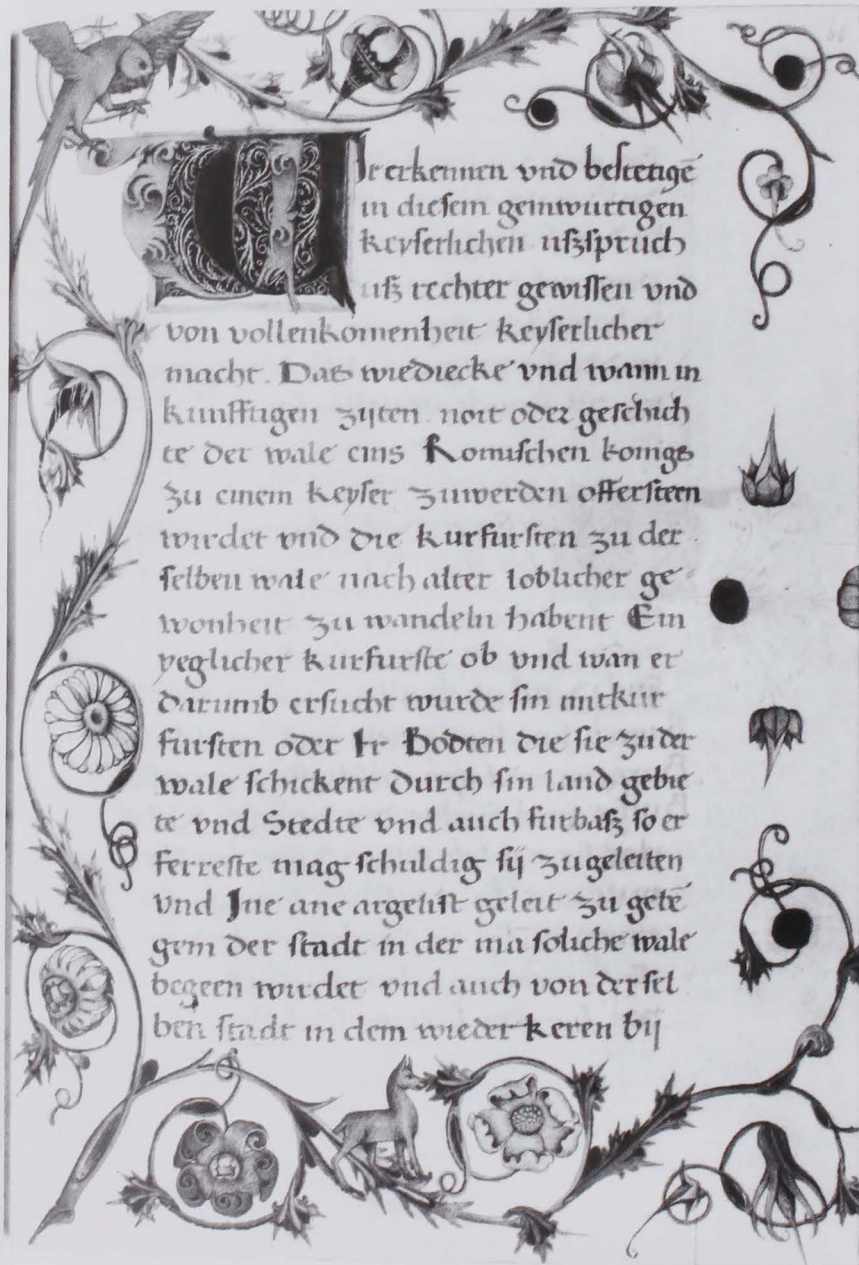 WIr erkennen vnd bestetigē
in diesem geinwurtigen
keyserlichen uszspruch
usz rechter gewissen vnd
von vollenkomenheit keyserlicher
macht. Das wiedicke vnd wann in
kunfftigen zijten noit oder geschich
te der wale eins Romischen konigs
zu einem keyser zuwerden offersteen
wirdet vnd die kurfursten zu der
selben wale nach alter loblicher ge
wonheit zu wandeln habent Ein
yeglicher kurfurste ob vnd wan er
darumb ersucht wurde sin mitkur
fursten oder Ir Bodten die sie zu der
wale schickent durch sin land gebie
te vnd Stedte vnd auch furbasz so er
ferreste mag schuldig sij zugeleiten
vnd Ine ane argelist geleit zu gebē
gein der stadt in der ma soliche wale
begeen wirdet vnd auch von der sel
ben stadt in dem wiederkeren bij